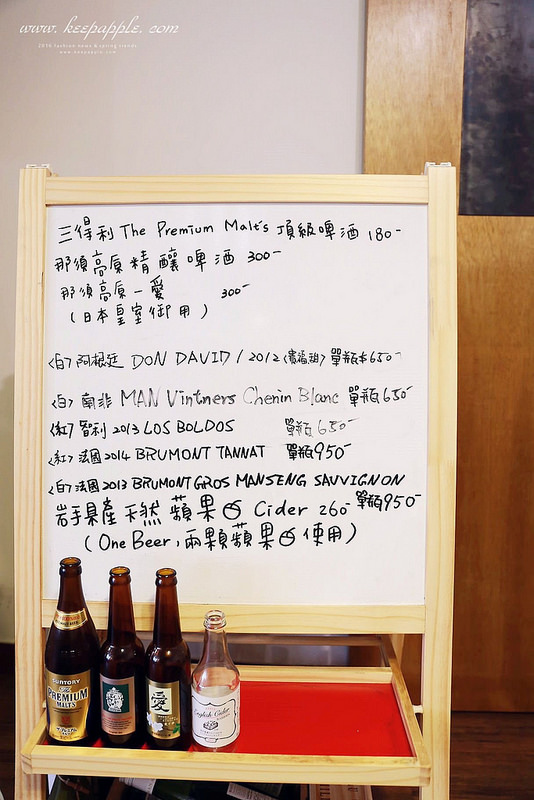 www.keepapple.com
2016 fashion news & spring trends
www.keepapple.com
三得利 The Premium Malt's 頂級啤酒 180-
那須高原精釀啤酒 300-
那須高原-愛 300-
(日本皇室御用)
<白>阿根廷 DON DAVID / 2012 單瓶$650-
<白>南非 MAN Vintners Chenin Blanc 單瓶650-
<紅>智利 2013 LOS BOLDOS 單瓶650-
<紅>法國2014 BRUMONT TANNAT 單瓶950-
<白>法國2013 BRUMONT GROS MANSENG SAUVIGNON 單瓶950-
岩手県產天然蘋果 Cider 260-
(One Beer, 兩顆蘋果使用)
SUNTORY
The
PREMIUM
MALT'S
ザ・プレミアム
愛
English Cider